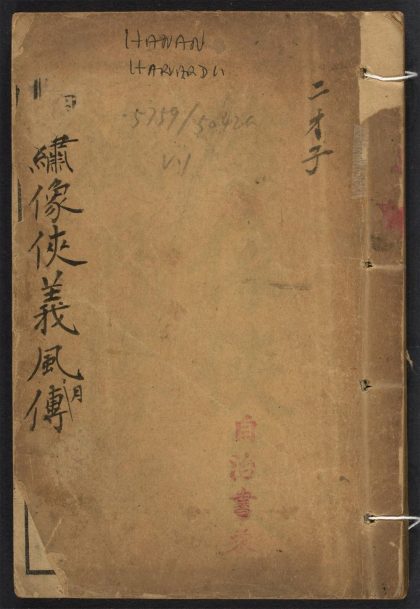 HANAN
HARVARD U
5759/5042a
V.1
二才子
繡像俠義風月傳
自治書